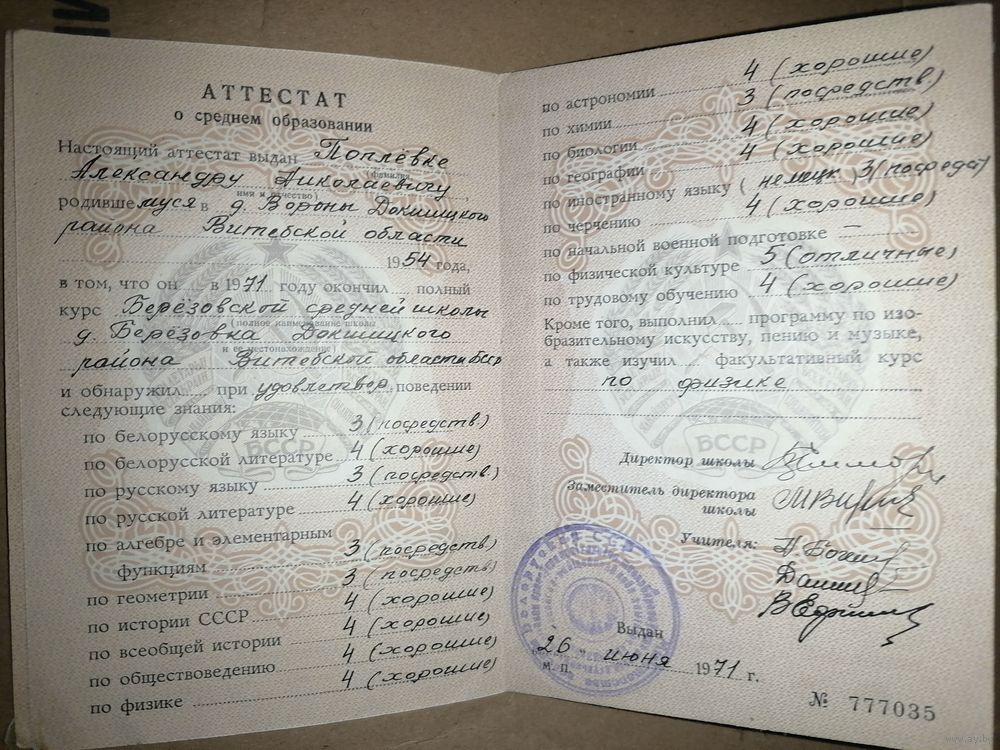 АТТЕСТАТ
о среднем образовании
Настоящий аттестат выдан Поплёвке
(фамилия,
Александру Николаевичу,
имя и отчество)
родившемуся в д. Вороны Докшицкого
района Витебской области
1954 года,
в том, что он в 1971 году окончил полный
курс Берёзовской средней школы
(полное наименование школы
д. Берёзовка Докшицкого
и ее местонахождение)
района Витебской области БССР
и обнаружил при удовлетвор. поведении
следующие знания:
по белорусскому языку 3 (посредств.)
по белорусской литературе 4 (хорошие)
по русскому языку 3 (посредств.)
по русской литературе 4 (хорошие)
по алгебре и элементарным
функциям 3 (посредств.)
по геометрии 3 (посредств)
по истории СССР 4 (хорошие)
по всеобщей истории 4 (хорошие)
по обществоведению 4 (хорошие)
по физике 4 (хорошие)
БССР
по астрономии 4 (хорошие)
по химии 3 (посредств.)
по биологии 4 (хорошие)
по географии 4 (хорошие)
по иностранному языку (немецк. 3 (посредст)
по черчению 4 (хорошие)
по начальной военной подготовке —
по физической культуре 5 (отличные)
по трудовому обучению 4 (хорошие)
Кроме того, выполнил программу по изо-
бразительному искусству, пению и музыке,
а также изучил факультативный курс
по физике
БССР
Директор школы
Заместитель директора
школы
Учителя:
Выдан
"26" июня 1971 г.
М. П.
№ 777035
www.ay.by